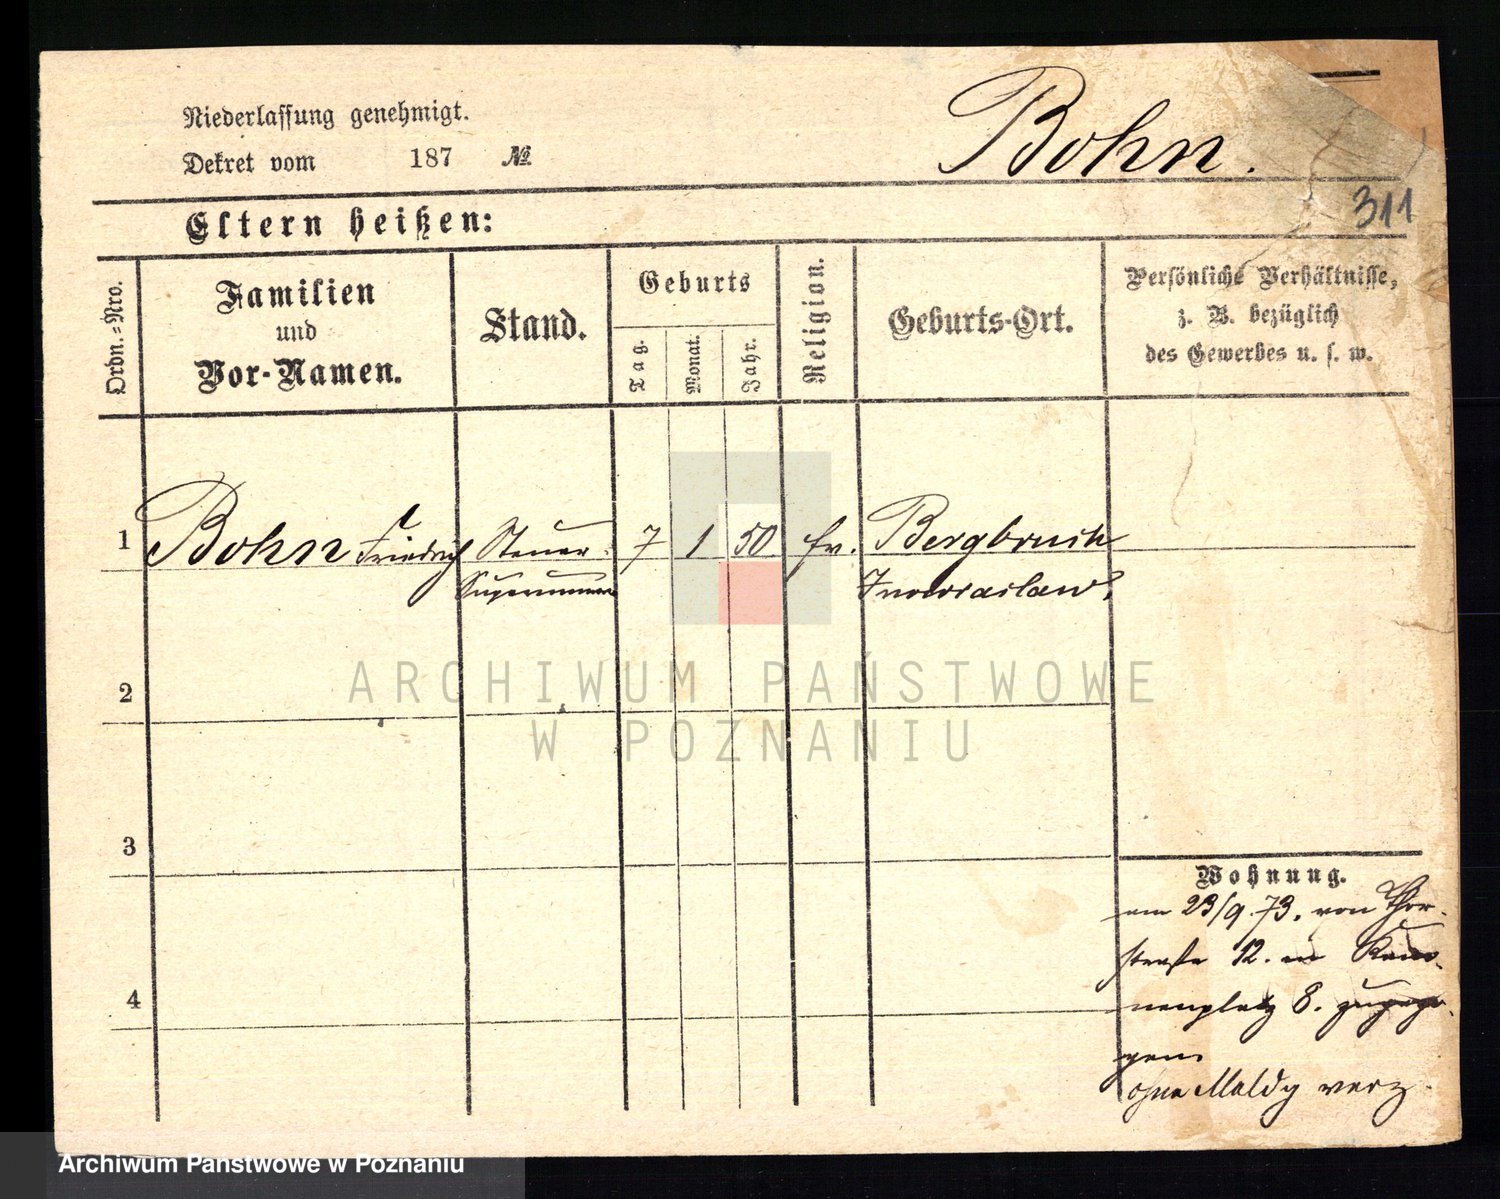 Niederlassung genehmigt.
Dekret vom 187 №
Bohn.
311
Eltern heißen:
Ordn.-Nro.
Familien
und
Vor-Namen.
Stand.
Geburts
Tag.
Monat.
Jahr.
Religion.
Geburts-Ort.
Persönliche Verhältnisse,
z. B. bezüglich
des Gewerbes u. s. w.
1 Bohn Friedrich Steuer- 7 1 50 ev. Bergbruch
Supernumerar Inowraclaw.
2
3
4
Wohnung.
am 23/9.73. von Thor-
straße 12. in
nenplatz 8. zugezo-
gen
ohne Meldg verz.
ARCHIWUM PAŃSTWOWE
W POZNANIU
Archiwum Państwowe w Poznaniu